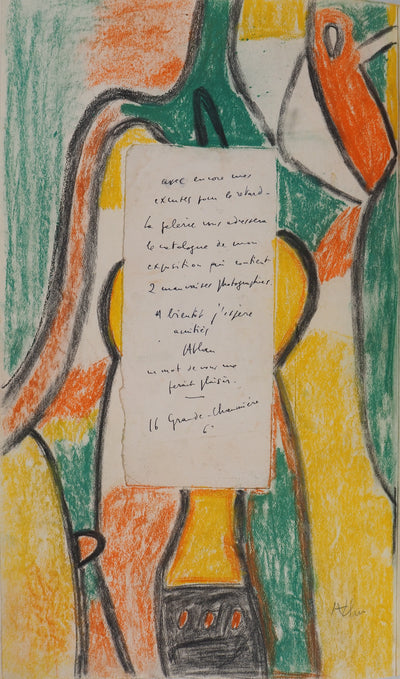 avec encore mes
excuses pour le retard -
La galerie vous adressera
le catalogue de mon
exposition qui contient
2 mauvaises photographies
A bientôt j'espère
amitiés
Atlan
un mot de vous me
ferait plaisir.
16 Grande-Chaumière
6e
Atlan